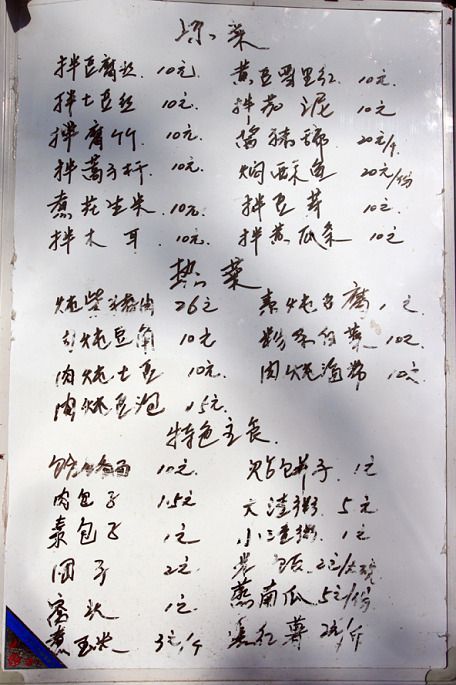 凉菜
拌豆腐丝 10元 黄豆雪里红 10元
拌土豆丝 10元 拌茄泥 10元
拌腐竹 10元 20元/个
拌蒿子杆 10元 焖酥鱼 20元/份
煮花生米 10元 拌豆芽 10元
拌木耳 10元 拌黄瓜条 10元
热菜
炖柴 26元 素炖豆腐
炖豆角 10元 粉条白菜 10元
肉炖土豆 10元 肉炖海带 10元
肉炖豆泡 15元
特色主食
10元 贴饼子 1元
肉包子 1.5元 大渣粥 5元
素包子 1元 小渣粥 1元
2元
窝头 1元 蒸南瓜 5元/份
煮玉米 3元/个 蒸红薯